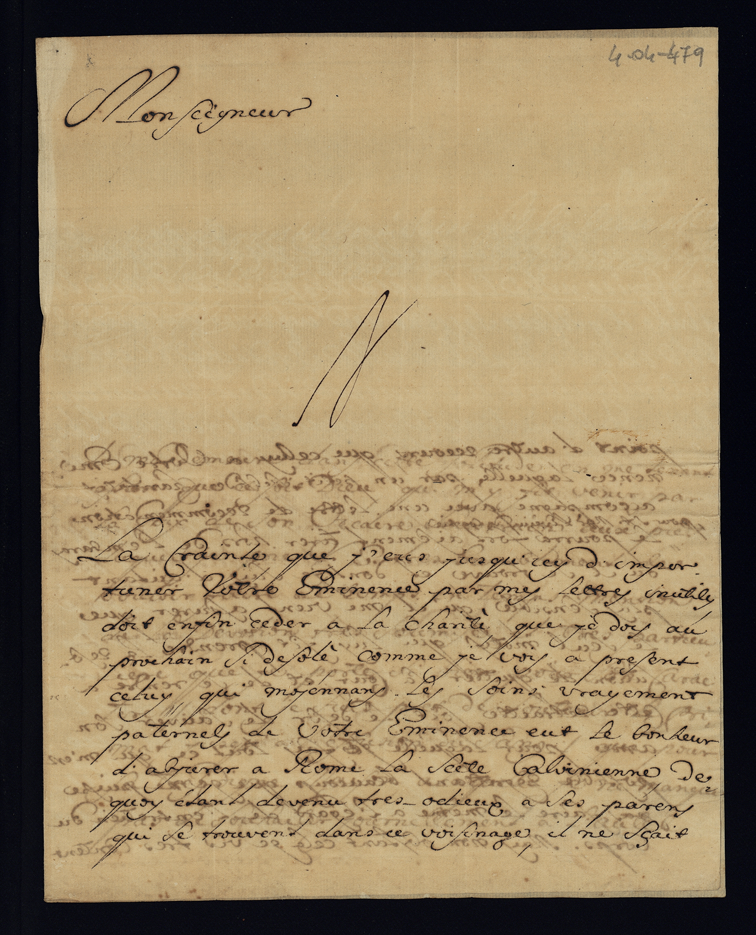 4-04-479
Monseigneur
La Crainte que j'eus jusqu'icy d'impor-
tuner Votre Eminence par mes lettres inutiles
doit enfin ceder a la charité que je dois au
prochain si desolé comme je vois a present
celuy qui moyennant les soins vrayement
paternels de Votre Eminence eut le bonheur
d'abjurer a Rome la Secte Calvinienne de
quoy étant devenu tres-odieux a ses parens
qui se trouvent dans ce voisinage, il ne sçait